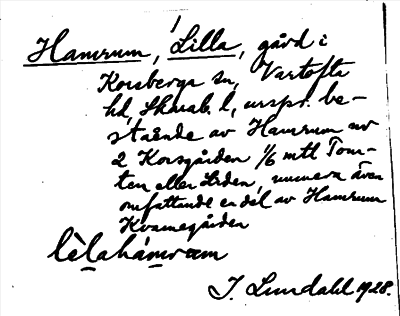 Hamrum, Lilla, gård i
Korsberga sn, Vartofta
hd, Skarab. l, urspr. be-
stående av Hamrum nr
2 Korsgården 1/6 mtl Tom-
ten eller Liden, numera även
omfattande en del av Hamrum
Kvarnegården
lèlahámram
J. Lundahl 1928.